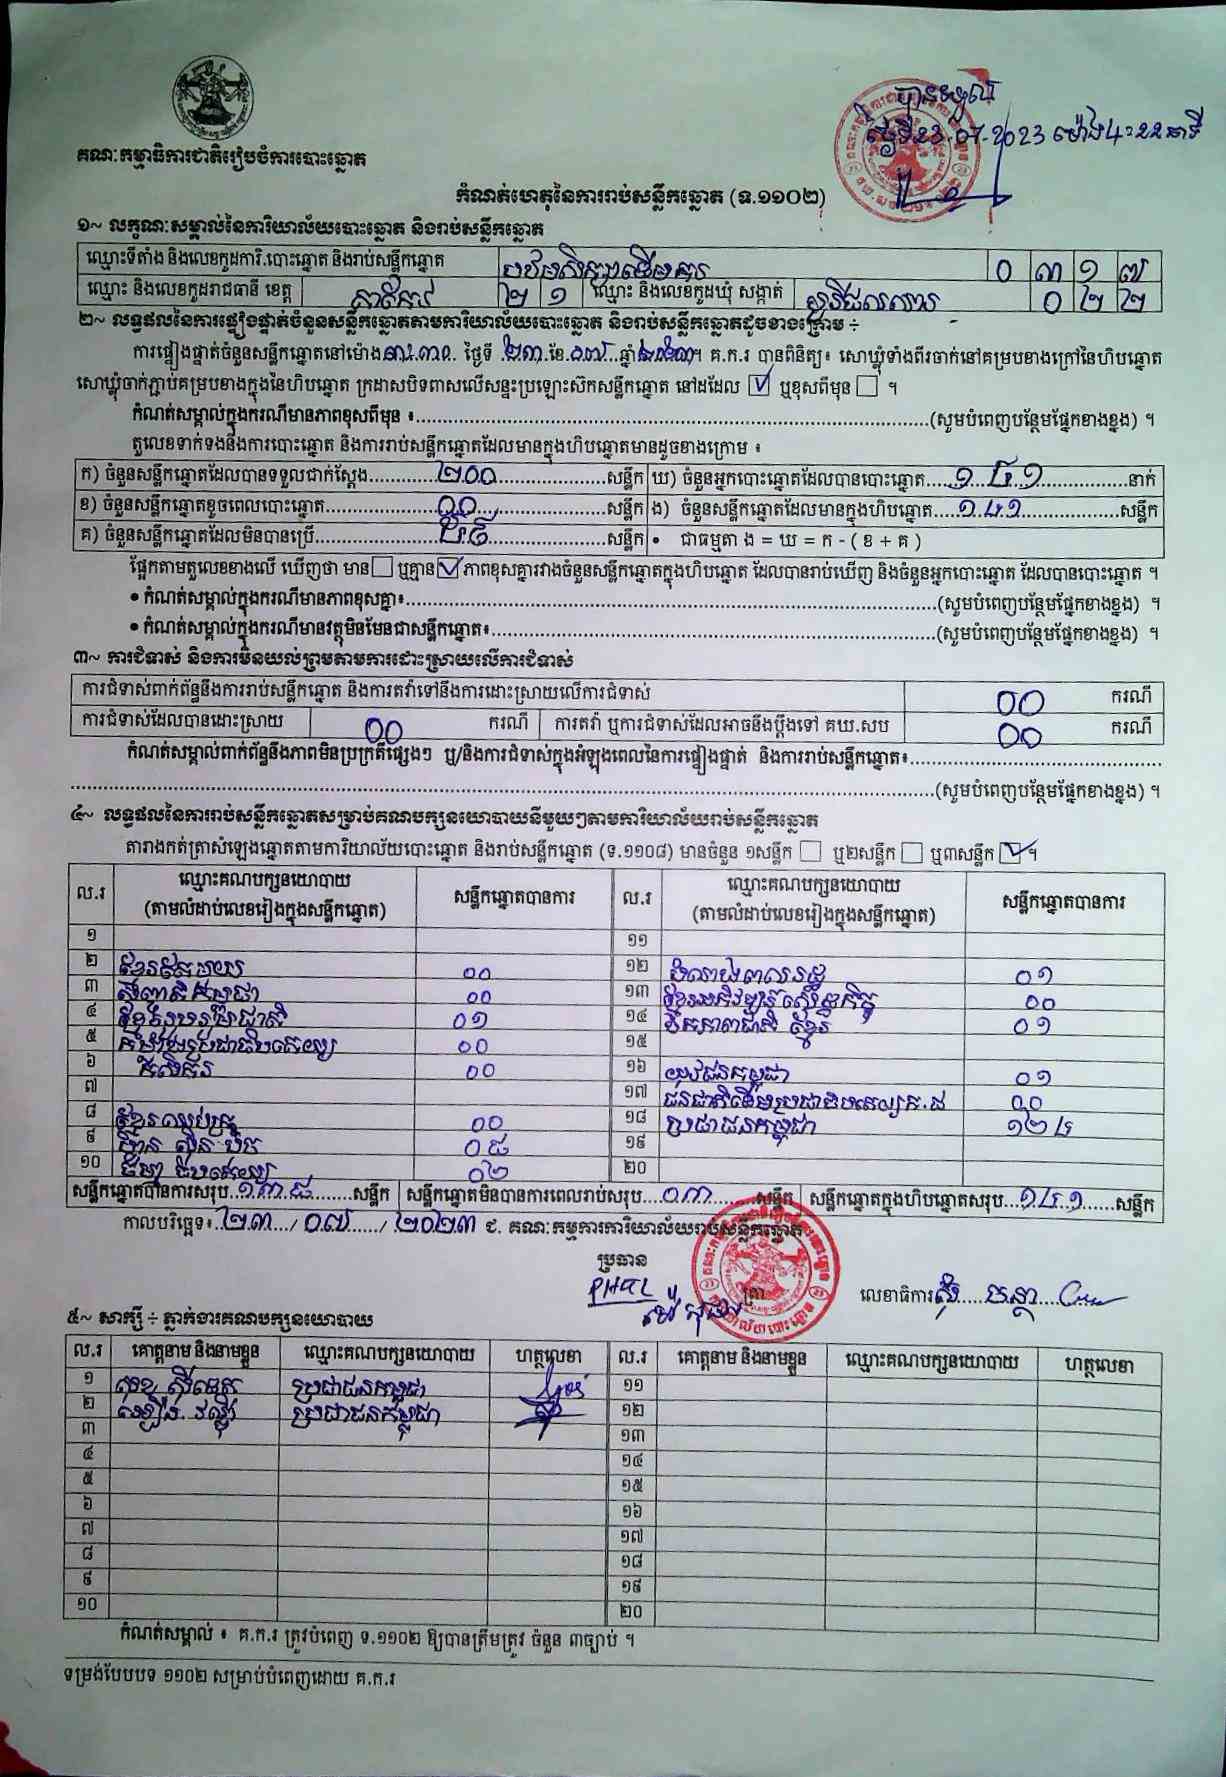 បានទទួល
ថ្ងៃទី23-07-2023 ម៉ោង4:22នាទី
គណៈកម្មាធិការជាតិរៀបចំការបោះឆ្នោត
កំណត់ហេតុនៃការរាប់សន្លឹកឆ្នោត (ទ.១១០២)
១~ លក្ខណៈសម្គាល់នៃការិយាល័យបោះឆ្នោត និងរាប់សន្លឹកឆ្នោត
ឈ្មោះទីតាំង និងលេខកូដការិ.បោះឆ្នោត និងរាប់សន្លឹកឆ្នោត 0 ៣ ១ ៧
ឈ្មោះ និងលេខកូដរាជធានី ខេត្ត តាកែវ ២ ១ ឈ្មោះ និងលេខកូដឃុំ សង្កាត់ 0 ២ ២
២~ លទ្ធផលនៃការផ្ទៀងផ្ទាត់ចំនួនសន្លឹកឆ្នោតតាមការិយាល័យបោះឆ្នោត និងរាប់សន្លឹកឆ្នោតដូចខាងក្រោម ÷
ការផ្ទៀងផ្ទាត់ចំនួនសន្លឹកឆ្នោតនៅម៉ោង ថ្ងៃទី ២៣ ខែ ០៧ ឆ្នាំ ២០២៣។ គ.ក.រ បានពិនិត្យ៖ សោឃ្លុំទាំងពីរចាក់នៅគម្របខាងក្រៅនៃហិបឆ្នោត
សោឃ្លុំចាក់ភ្ជាប់គម្របខាងក្នុងនៃហិបឆ្នោត ក្រដាសបិទពាសលើសន្ទះប្រឡោះស៊កសន្លឹកឆ្នោត នៅដដែល ☑ ឬខុសពីមុន ☐ ។
កំណត់សម្គាល់ក្នុងករណីមានភាពខុសពីមុន ៖..........(សូមបំពេញបន្ថែមផ្នែកខាងខ្នង) ។
តួលេខទាក់ទងនឹងការបោះឆ្នោត និងការរាប់សន្លឹកឆ្នោតដែលមានក្នុងហិបឆ្នោតមានដូចខាងក្រោម ៖
ក) ចំនួនសន្លឹកឆ្នោតដែលបានទទួលជាក់ស្តែង....២00....សន្លឹក ឃ) ចំនួនអ្នកបោះឆ្នោតដែលបានបោះឆ្នោត....១៤១....នាក់
ខ) ចំនួនសន្លឹកឆ្នោតខូចពេលបោះឆ្នោត....00....សន្លឹក ង) ចំនួនសន្លឹកឆ្នោតដែលមានក្នុងហិបឆ្នោត....១៤១....សន្លឹក
គ) ចំនួនសន្លឹកឆ្នោតដែលមិនបានប្រើ....៥៩....សន្លឹក • ជាធម្មតា ង = ឃ = ក - ( ខ + គ )
ផ្អែកតាមតួលេខខាងលើ ឃើញថា មាន ☐ ឬគ្មាន ☑ ភាពខុសគ្នារវាងចំនួនសន្លឹកឆ្នោតក្នុងហិបឆ្នោត ដែលបានរាប់ឃើញ និងចំនួនអ្នកបោះឆ្នោត ដែលបានបោះឆ្នោត ។
• កំណត់សម្គាល់ក្នុងករណីមានភាពខុសគ្នា៖..........(សូមបំពេញបន្ថែមផ្នែកខាងខ្នង) ។
• កំណត់សម្គាល់ក្នុងករណីមានវត្ថុមិនមែនជាសន្លឹកឆ្នោត៖..........(សូមបំពេញបន្ថែមផ្នែកខាងខ្នង) ។
៣~ ការជំទាស់ និងការមិនយល់ព្រមតាមការដោះស្រាយលើការជំទាស់
ការជំទាស់ពាក់ព័ន្ធនឹងការរាប់សន្លឹកឆ្នោត និងការតវ៉ាទៅនឹងការដោះស្រាយលើការជំទាស់ 00 ករណី
ការជំទាស់ដែលបានដោះស្រាយ 00 ករណី ការតវ៉ា ឬការជំទាស់ដែលអាចនឹងប្តឹងទៅ គឃ.សប 00 ករណី
កំណត់សម្គាល់ពាក់ព័ន្ធនឹងភាពមិនប្រក្រតីផ្សេងៗ ឬ/និងការជំទាស់ក្នុងអំឡុងពេលនៃការផ្ទៀងផ្ទាត់ និងការរាប់សន្លឹកឆ្នោត៖..........
..........(សូមបំពេញបន្ថែមផ្នែកខាងខ្នង) ។
៤~ លទ្ធផលនៃការរាប់សន្លឹកឆ្នោតសម្រាប់គណបក្សនយោបាយនីមួយៗតាមការិយាល័យរាប់សន្លឹកឆ្នោត
តារាងកត់ត្រាសំឡេងឆ្នោតតាមការិយាល័យបោះឆ្នោត និងរាប់សន្លឹកឆ្នោត (ទ.១១០៨) មានចំនួន ១សន្លឹក ☐ ឬ២សន្លឹក ☐ ឬ៣សន្លឹក ☑ ។
ល.រ ឈ្មោះគណបក្សនយោបាយ (តាមលំដាប់លេខរៀងក្នុងសន្លឹកឆ្នោត) សន្លឹកឆ្នោតបានការ ល.រ ឈ្មោះគណបក្សនយោបាយ (តាមលំដាប់លេខរៀងក្នុងសន្លឹកឆ្នោត) សន្លឹកឆ្នោតបានការ
១ ១១
២ 00 ១២ 0១
៣ 00 ១៣ ខ្មែរអភិវឌ្ឍន៍សេដ្ឋកិច្ច 00
៤ ខ្មែររួបរួមជាតិ 0១ ១៤ ឯកភាពជាតិខ្មែរ 0១
៥ 00 ១៥
៦ កសិករ 00 ១៦ យុវជនកម្ពុជា 0១
៧ ១៧ 00
៨ 00 ១៨ ប្រជាជនកម្ពុជា ១២៤
៩ ហ៊្វុនស៊ិនប៉ិច 0៨ ១៩
១០ 0២ ២០
សន្លឹកឆ្នោតបានការសរុប..១៣៨....សន្លឹក សន្លឹកឆ្នោតមិនបានការពេលរាប់សរុប...0៣....សន្លឹក សន្លឹកឆ្នោតក្នុងហិបឆ្នោតសរុប...១៤១....សន្លឹក
កាលបរិច្ឆេទ៖ ២៣ / 0៧ / ២0២៣ ៩. គណៈកម្មការការិយាល័យរាប់សន្លឹកឆ្នោត
ប្រធាន
ត្រា លេខាធិការ
៥~ សាក្សី ÷ ភ្នាក់ងារគណបក្សនយោបាយ
ល.រ គោត្តនាម និងនាមខ្លួន ឈ្មោះគណបក្សនយោបាយ ហត្ថលេខា ល.រ គោត្តនាម និងនាមខ្លួន ឈ្មោះគណបក្សនយោបាយ ហត្ថលេខា
១ ប្រជាជនកម្ពុជា ១១
២ ប្រជាជនកម្ពុជា ១២
៣ ១៣
៤ ១៤
៥ ១៥
៦ ១៦
៧ ១៧
៨ ១៨
៩ ១៩
១០ ២០
កំណត់សម្គាល់ ៖ គ.ក.រ ត្រូវបំពេញ ទ.១១០២ ឱ្យបានត្រឹមត្រូវ ចំនួន ៣ច្បាប់ ។
ទម្រង់បែបបទ ១១០២ សម្រាប់បំពេញដោយ គ.ក.រ